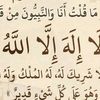 مَا قُلْتُ أَنَا وَالنَّبِيُّونَ مِنْ
لَا إِلَهَ إِلَّا اللَّهُ
لَا شَرِيكَ لَهُ، لَهُ الْمُلْكُ وَلَهُ
وَهُوَ عَلَى كُلِّ شَيْءٍ قَدِيرٌ